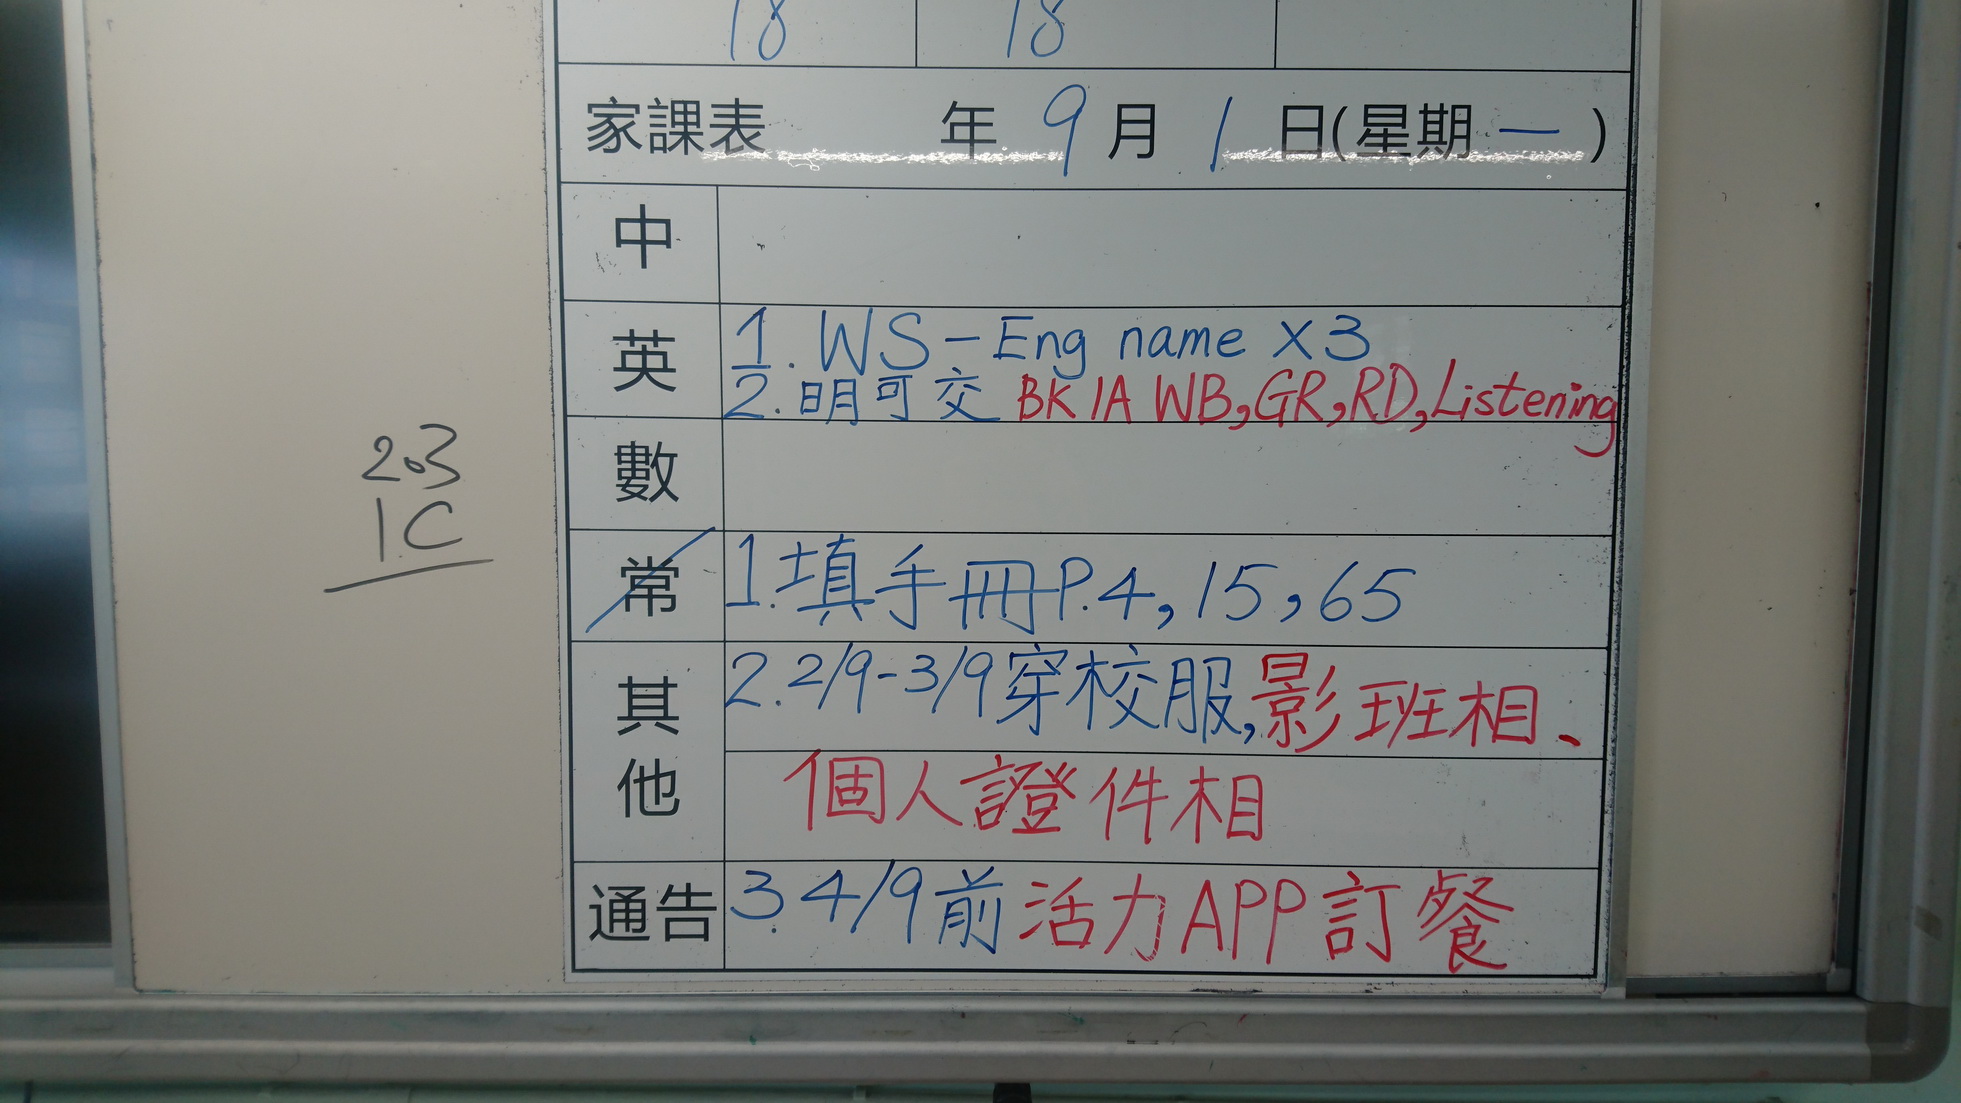 18 18
家課表 年 9 月 1 日(星期 一 )
中
英 1. WS - Eng name X3
2. 明可交 BK 1A WB, GR, RD, Listening
數
常 1. 填手冊 P.4, 15, 65
其他 2. 2/9 - 3/9 穿校服, 影班相、
個人證件相
通告 3. 4/9 前 活力 APP 訂餐
203
1C